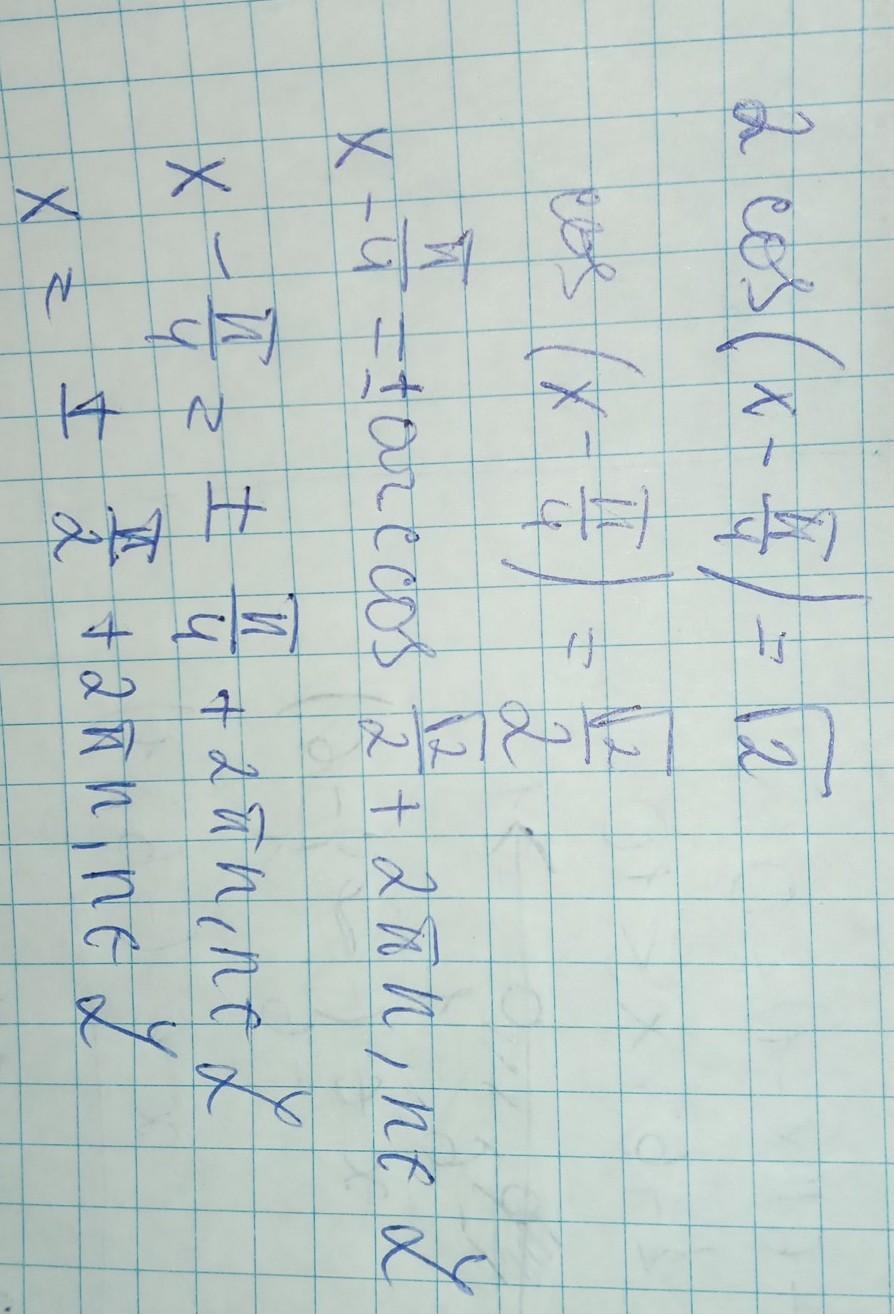 2 cos(x - π/4) = √2
cos(x - π/4) = √2/2
x - π/4 = ± arccos √2/2 + 2πn, n∈Z
x - π/4 = ± π/4 + 2πn, n∈Z
x = ± π/2 + 2πn, n∈Z